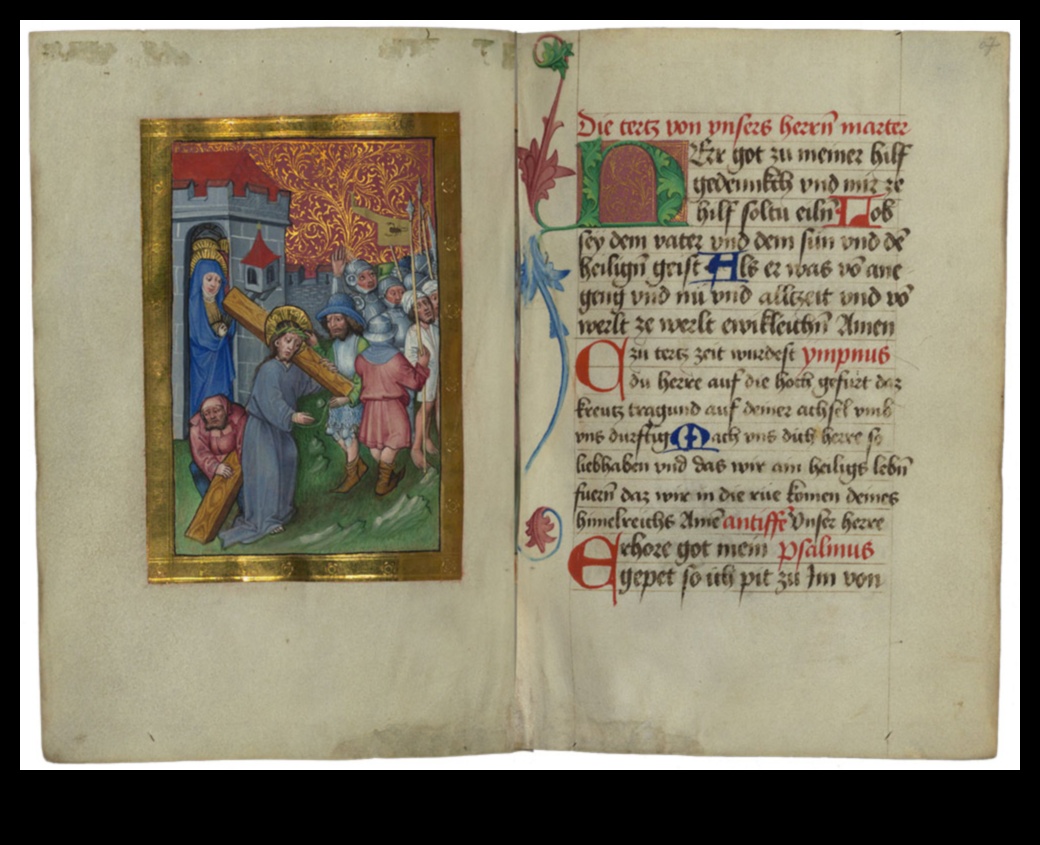 67
Die tertz von vnsers herrn marter
HErr got zu meiner hilf
gedennkch vnd mir ze
hilf soltu eiln Lob
sey dem vater vnd dem sun vnd dē
heiligñ geist Als er was vō ane
geng vnd nu vnd alltzeit vnd vō
werlt ze werlt ewikleichñ Amen
zu tertz zeit wurdest ympnus
du herre auf die hoch gefurt daz
kreutz tragund auf deiner achsel vmb
vns durftig Mach vns dich herre so
liebhaben vnd das wir am heiligs lebñ
fuern daz wir in die rue komen deines
himelreichs Amē antiffē Vnser herre
Erhore got mein psalmus
gepet so ich pit zu Im von